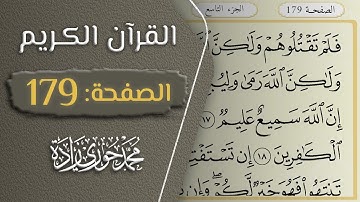 القرآن الكريم
الصفحة: 179
محمد خوري زاده
الصفحة 179
الجزء التاسع
فَلَمْ تَقْتُلُوهُمْ وَلَٰكِنَّ
وَلَٰكِنَّ ٱللَّهَ رَمَىٰ وَلِيُبْ
إِنَّ ٱللَّهَ سَمِيعٌ عَلِيمٌ ١٧
ٱلْكَٰفِرِينَ ١٨ إِن تَسْتَفْتِ
تَنتَهُوا۟ فَهُوَ خَيْرٌ لَّكُمْ وَإِن